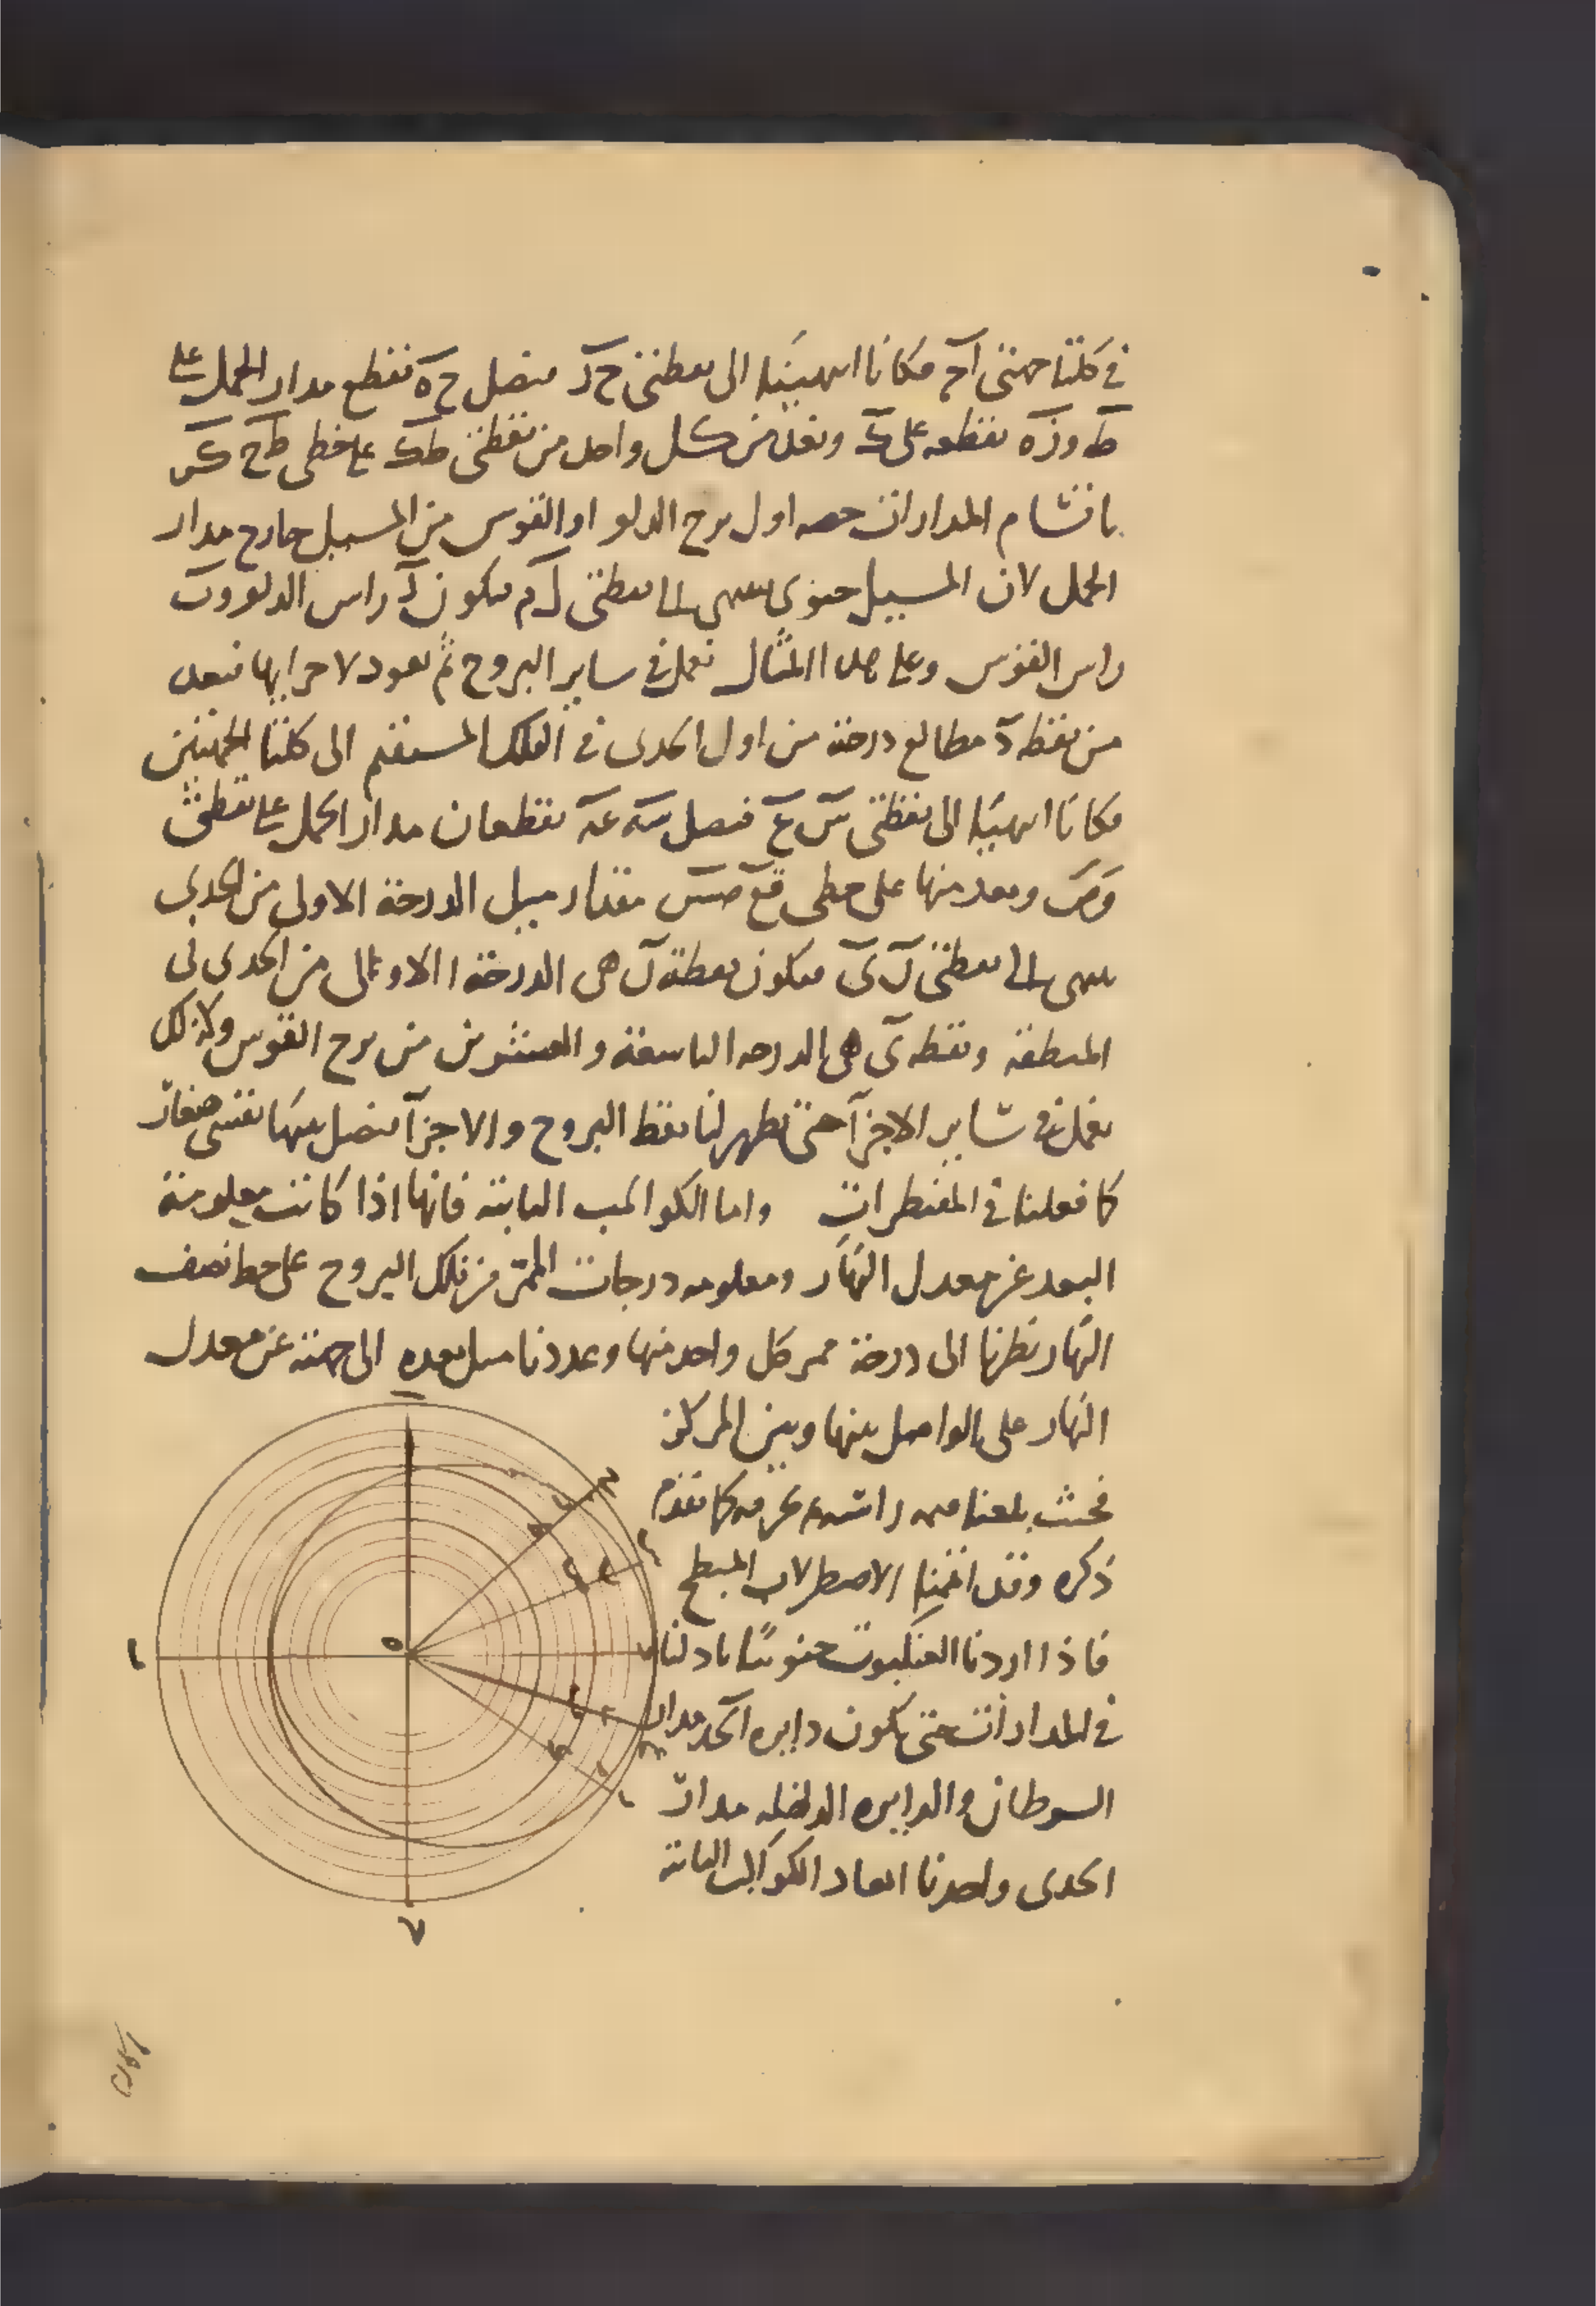 في كلتا جهتي آ ج فكانا انتهينا الى نقطتي ح ز فنصل ح ه نقطع مدار الحمل على
ط و ز ه نقطعه على ك ونعد من كل واحد من نقطتي ط ك على خطي ط ح ك ز
باقتسام المدارات حصه اول برج الدلو او القوس من الميل خارج مدار
الحمل لان الميل جنوبي ينتهي الى نقطتي ل م فيكون ل راس الدلو و م
راس القوس وعلى هذا المثال نعمل في ساير البروج ثم نعود لاجزايها فنعد
من نقطه د مطالع درجة من اول الجدى في الفلك المستقيم الى كلتا الجهتين
فكانا انتهينا الى نقطتي س ع فنصل س ه ع ه نقطعان مدار الحمل على نقطتي
ق ص ونعد منها على خطي ق ع ص س مقدار ميل الدرجة الاولى من الجدى
ينتهي الى نقطتي ن ى فيكون نقطة ن هي الدرجة الاولى من الجدى في
المنطقه ونقطه ى هي الدرجه التاسعة والعشرون من برج القوس وكذلك
نعمل في ساير الاجزآ حتى تظهر لنا نقط البروج والاجزآ فنصل بينها بقسي صغار
كما فعلنا في المقنطرات واما الكواكب الثابته فانها اذا كانت معلومة
البعد عن معدل النهار ومعلومه درجات الممر من فلك البروج على خط نصف
النهار نظرنا الى درجة ممر كل واحد منها وعددنا مثل بعده الى جهته عن معدل
النهار على الواصل بينها وبين المركز
فحيث بلغنا فهو راسه نحرفه كما تقدم
ذكره وقد اتممنا الاصطرلاب المبطح
فاذا اردنا العنكبوت جنوبيًا بادلنا
في المدارات حتى يكون دايره ا ب ج د مدار
السرطان والدايره الداخله مدار
الجدى واخذنا ابعاد الكواكب الثابتة